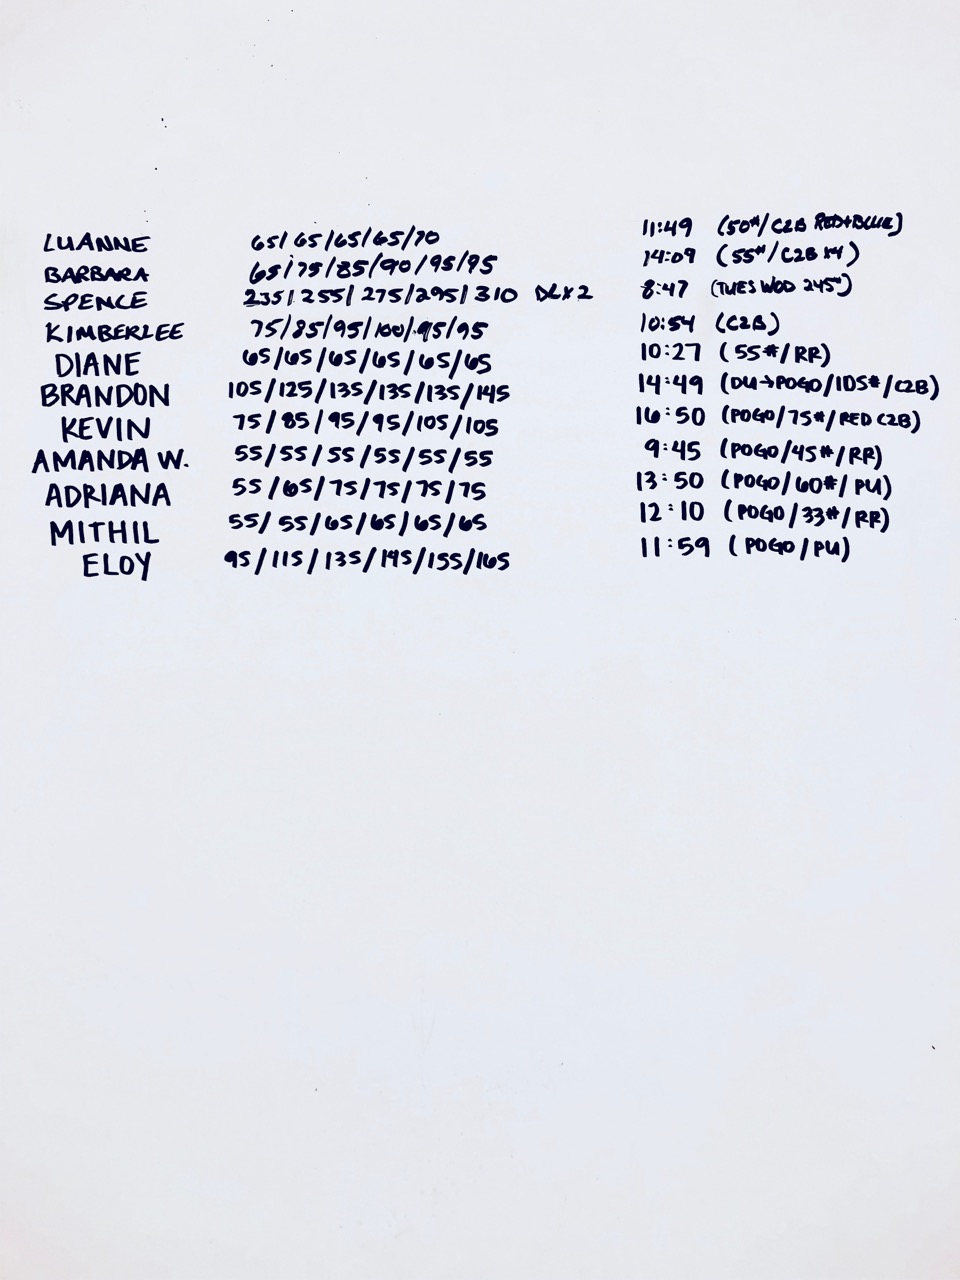 LUANNE 65/65/65/65/70 11:49 (50#/C2B RED+BLUE)
BARBARA 65/75/85/90/95/95 14:09 (55#/C2B)
SPENCE 235/255/275/295/310 DLx2 8:47 (TUES WOD 245#)
KIMBERLEE 75/85/95/100/95/95 10:54 (C2B)
DIANE 65/65/65/65/65/65 10:27 (55#/RR)
BRANDON 105/125/135/135/135/145 14:49 (DU→POGO/105#/C2B)
KEVIN 75/85/95/95/105/105 16:50 (POGO/75#/RED C2B)
AMANDA W. 55/55/55/55/55/55 9:45 (POGO/45#/RR)
ADRIANA 55/65/75/75/75/75 13:50 (POGO/60#/PU)
MITHIL 55/55/65/65/65/65 12:10 (POGO/33#/RR)
ELOY 95/115/135/145/155/165 11:59 (POGO/PU)